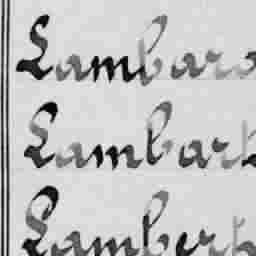 Lambaro
Lambart
Lambert